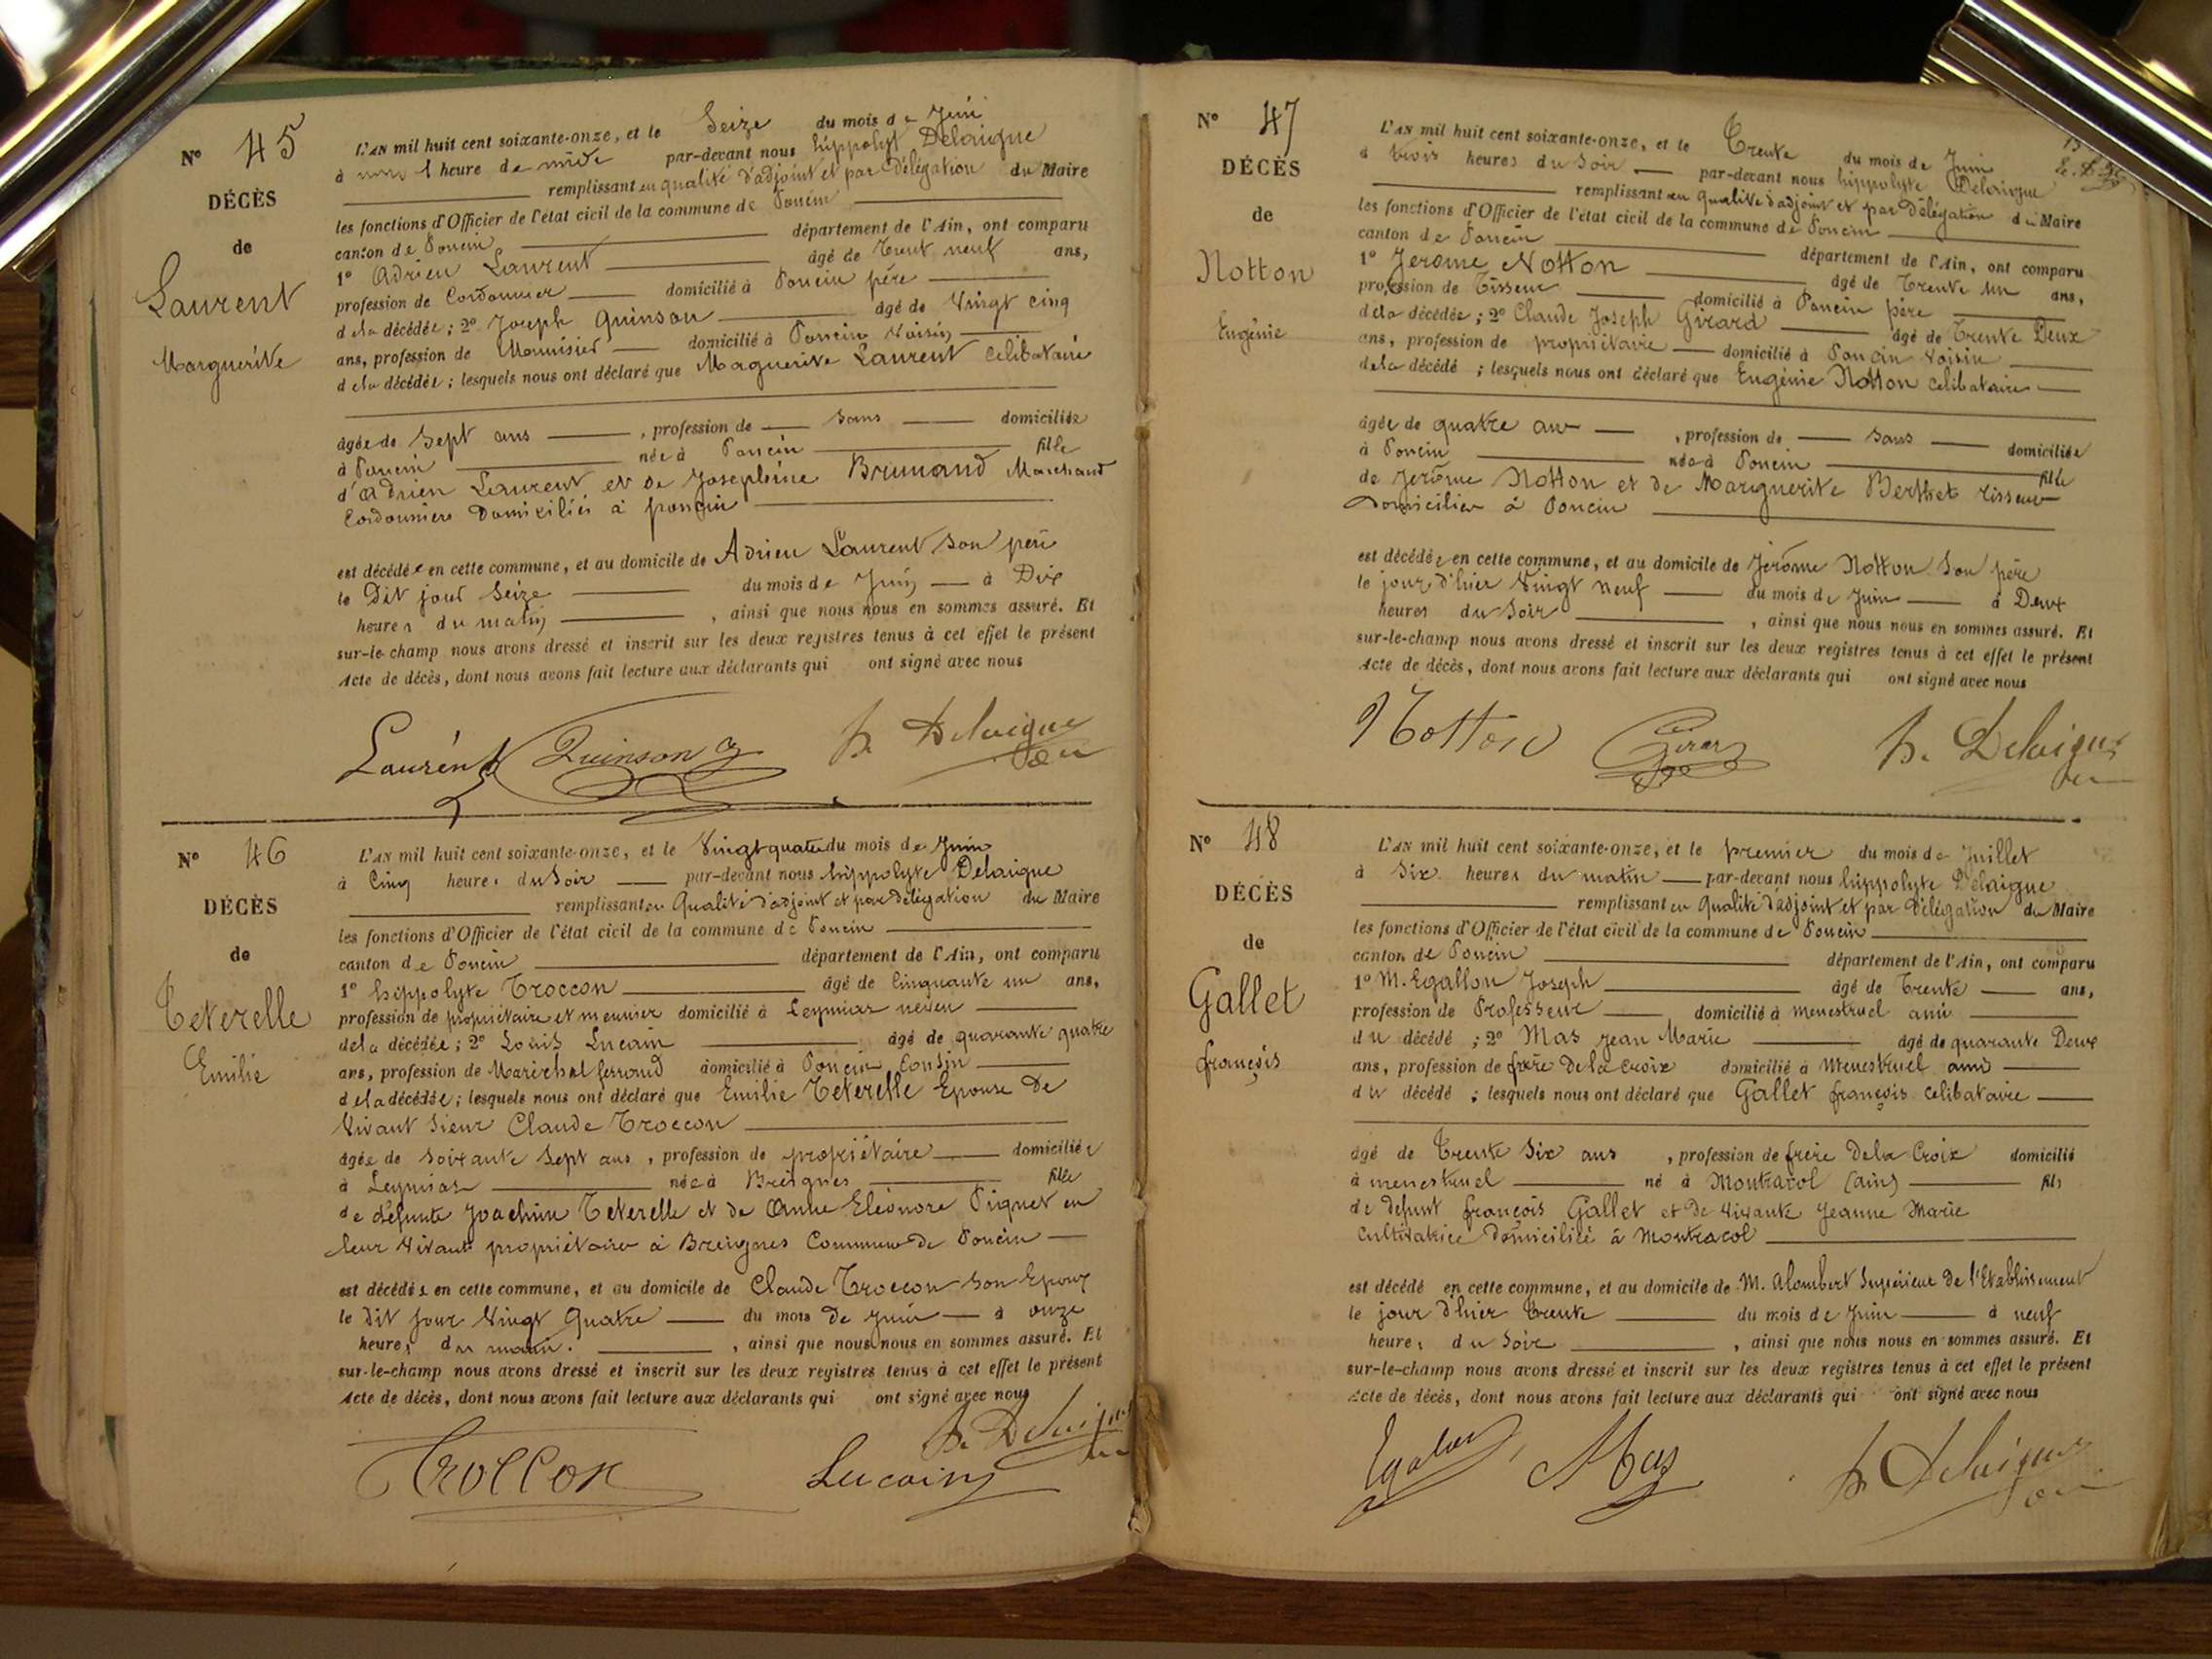 N° 45
DÉCÈS
de
Laurent
Marguerite
L'AN mil huit cent soixante-onze, et le Seize du mois de Juin
à 1 heure de midi par-devant nous hippolyt Delaigue
remplissant en qualité d'adjoint et par Délégation du Maire
les fonctions d'Officier de l'état civil de la commune de Poncin
canton de Poncin département de l'Ain, ont comparu
1° Adrien Laurent âgé de Trent neuf ans,
profession de Cordonnier domicilié à Poncin père
de la décédée ; 2° Joseph Quinson âgé de Vingt cinq
ans, profession de Menuisier domicilié à Poncin Voisin
de la décédée ; lesquels nous ont déclaré que Maguerite Laurent Celibataire
âgée de Sept ans , profession de Sans domiciliée
à Poncin née à Poncin fille
d'Adrien Laurent et de Josephine Brunand Marchand
Cordonniers Domiciliés à poncin
est décédée en cette commune, et au domicile de Adrien Laurent Son père
le Dit jour Seize du mois de Juin à Dix
heures du matin , ainsi que nous nous en sommes assuré. Et
sur-le-champ nous avons dressé et inscrit sur les deux registres tenus à cet effet le présent
Acte de décès, dont nous avons fait lecture aux déclarants qui ont signé avec nous
Laurent Quinson h. Delaigue
N° 46
DÉCÈS
de
Teterelle
Emilie
L'AN mil huit cent soixante-onze, et le Vingt quatre du mois de Juin
à Cinq heures du Soir par-devant nous hippolyte Delaigue
remplissant en Qualité d'adjoint et par Délégation du Maire
les fonctions d'Officier de l'état civil de la commune de Poncin
canton de Poncin département de l'Ain, ont comparu
1° hippolyte Troccon âgé de Cinquante un ans,
profession de propriétaire et meunier domicilié à Leymiat neveu
de la décédée ; 2° Louis Lucain âgé de quarante quatre
ans, profession de Maréchal ferrand domicilié à Poncin Cousin
de la décédée ; lesquels nous ont déclaré que Emilie Teterelle Epouse De
Vivant Sieur Claude Troccon
âgée de Soixante Sept ans , profession de propriétaire domiciliée
à Leymiat née à Breignes fille
de défunts Joachim Teterelle et de Anne Eléonore Piquet en
leur Vivant propriétaires à Breignes Commune de Poncin
est décédée en cette commune, et au domicile de Claude Troccon Son Epoux
le Dit jour Vingt Quatre du mois de Juin à onze
heures du matin. , ainsi que nous nous en sommes assuré. Et
sur-le-champ nous avons dressé et inscrit sur les deux registres tenus à cet effet le présent
Acte de décès, dont nous avons fait lecture aux déclarants qui ont signé avec nous
h. Delaigue
Troccon Lucain
N° 47
DÉCÈS
de
Notton
Eugénie
L'AN mil huit cent soixante-onze, et le Trente du mois de Juin
à trois heures du Soir par-devant nous hippolyte Delaigue
remplissant en Qualité d'adjoint et par Délégation du Maire
les fonctions d'Officier de l'état civil de la commune de Poncin
canton de Poncin département de l'Ain, ont comparu
1° Jerome Notton âgé de Trente un ans,
profession de Tisseur domicilié à Poncin père
de la décédée ; 2° Claude Joseph Girard âgé de Trente Deux
ans, profession de propriétaire domicilié à Poncin Voisin
de la décédé ; lesquels nous ont déclaré que Eugénie Notton Celibataire
âgée de quatre ans , profession de Sans domiciliée
à Poncin née à Poncin fille
de Jerôme Notton et de Marguerite Berthet tisseurs
Domiciliés à Poncin
est décédée en cette commune, et au domicile de Jérôme Notton Son père
le jour d'hier Vingt neuf du mois de Juin à Deux
heures du Soir , ainsi que nous nous en sommes assuré. Et
sur-le-champ nous avons dressé et inscrit sur les deux registres tenus à cet effet le présent
Acte de décès, dont nous avons fait lecture aux déclarants qui ont signé avec nous
Notton Girard h. Delaigue
N° 48
DÉCÈS
de
Gallet
françois
L'AN mil huit cent soixante-onze, et le premier du mois de Juillet
à Six heures du matin par-devant nous hippolyte Delaigue
remplissant en Qualité d'adjoint et par Délégation du Maire
les fonctions d'Officier de l'état civil de la commune de Poncin
canton de Poncin département de l'Ain, ont comparu
1° M. Egallon Joseph âgé de Trente ans,
profession de Professeur domicilié à menestruel ami
du décédé ; 2° Mas Jean Marie âgé de quarante Deux
ans, profession de frère De la Croix domicilié à Menestruel ami
du décédé ; lesquels nous ont déclaré que Gallet françois Celibataire
âgé de Trente Six ans , profession de frère De la Croix domicilié
à menestruel né à Montracol (ain) fils
de defunt françois Gallet et De Vivante Jeanne Marie
Cultivatrice Domiciliée à Montracol
est décédé en cette commune, et au domicile de M. Alombert Supérieur De l'Etablissement
le jour d'hier Trente du mois de Juin à neuf
heures du Soir , ainsi que nous nous en sommes assuré. Et
sur-le-champ nous avons dressé et inscrit sur les deux registres tenus à cet effet le présent
Acte de décès, dont nous avons fait lecture aux déclarants qui ont signé avec nous
Egallon Mas h. Delaigue